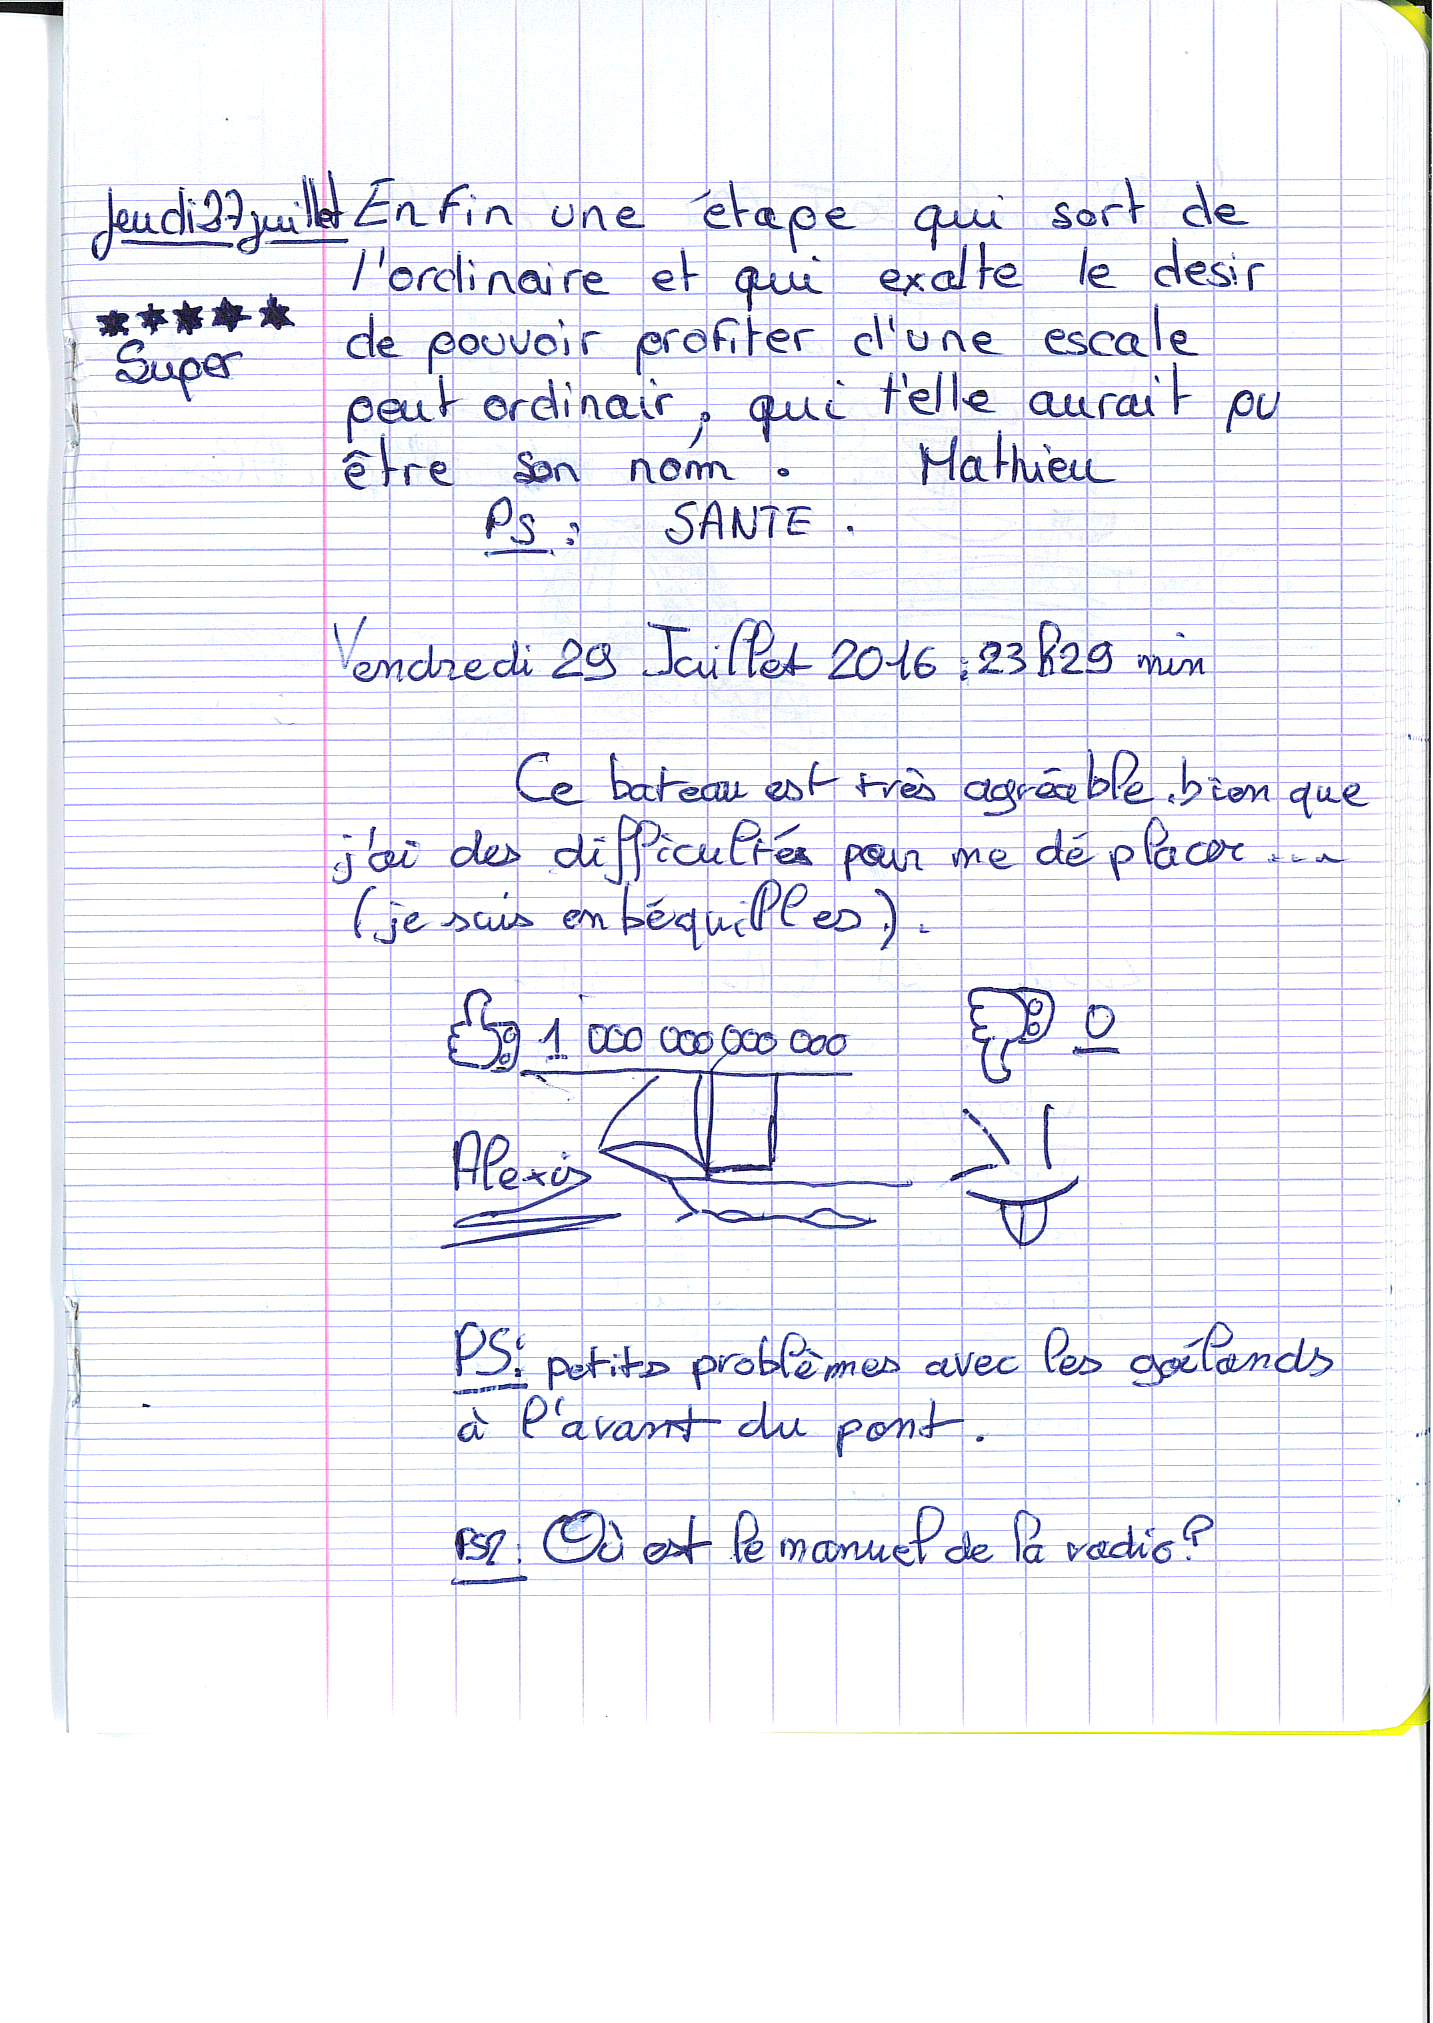 jeudi 27 juillet Enfin une étape qui sort de
l'ordinaire et qui exalte le desir
★★★★★ de pouvoir profiter d'une escale
Super
peut ordinair, qui t'elle aurait pu
être son nom. Mathieu
PS : SANTE.
Vendredi 29 Juillet 2016 : 23h29 min
Ce bateau est très agréable, bien que
j'ai des difficultés pour me déplacer ....
(je suis en béquilles.).
1 000 000 000 000 0
Alexis
PS : petits problèmes avec les goélands
à l'avant du pont.
PS2 : Où est le manuel de la radio ?